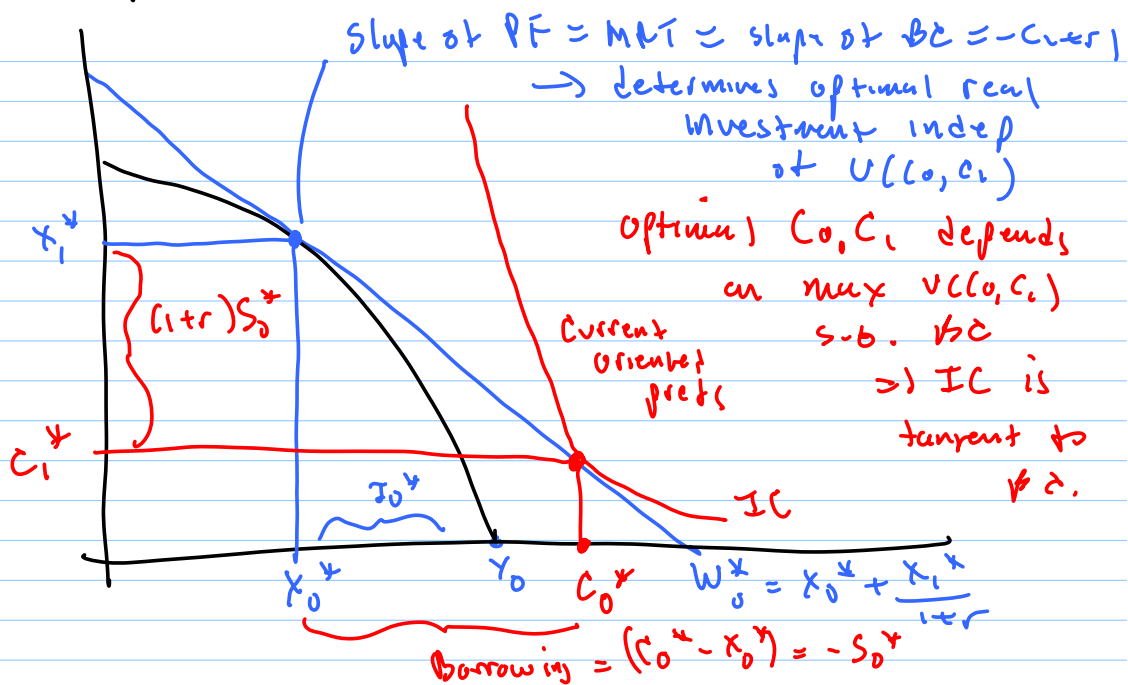 Slope of PF = MRT = slope of BC = -(1+r)
→ determines optimal real
investment indep
of U(C₀, C₁)
optimal C₀, C₁ depends
on max U(C₀, C₁)
sub. BC
⇒ IC is
tangent to
BC.
X₁*
(1+r)S₀*
Current
oriented
prefs
C₁*
I₀*
IC
X₀*
Y₀
C₀*
W₀* = X₀* + X₁*/1+r
Borrowing = (C₀* - X₀*) = -S₀*